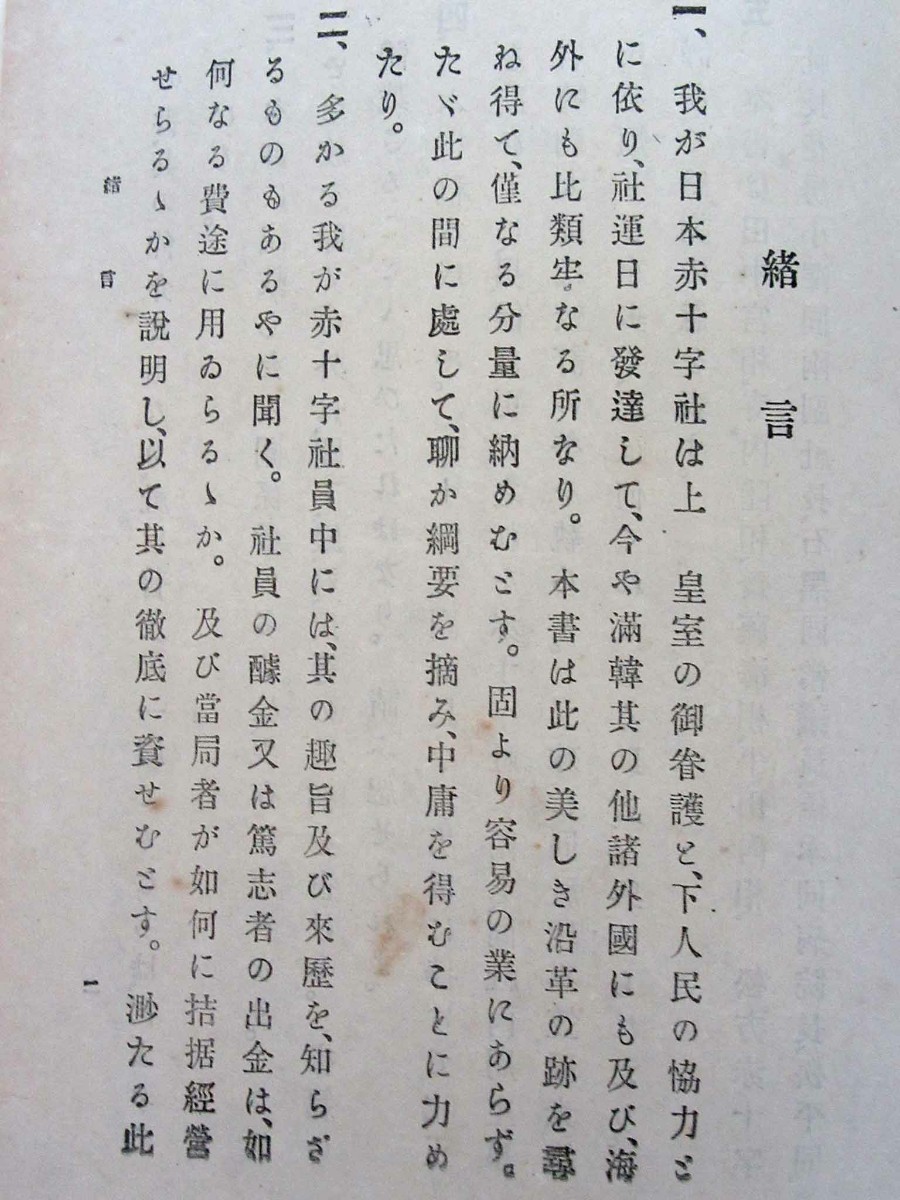 緒言
一、我が日本赤十字社は上　皇室の御眷護と、下人民の協力と
に依り、社運日に發達して、今や滿韓其の他諸外國にも及び、海
外にも比類牢なる所なり。本書は此の美しき沿革の跡を尋
ね得て、僅なる分量に納めむとす。固より容易の業にあらず。
たゞ此の間に處して、聊か綱要を摘み、中庸を得むことに力め
たり。
二、多かる我が赤十字社員中には、其の趣旨及び來歷を、知らざ
るものもあるやに聞く。社員の醵金又は篤志者の出金は、如
何なる費途に用ゐらるゝか。及び當局者が如何に拮据經營
せらるゝかを說明し、以て其の徹底に資せむとす。渺たる此
緒言
一